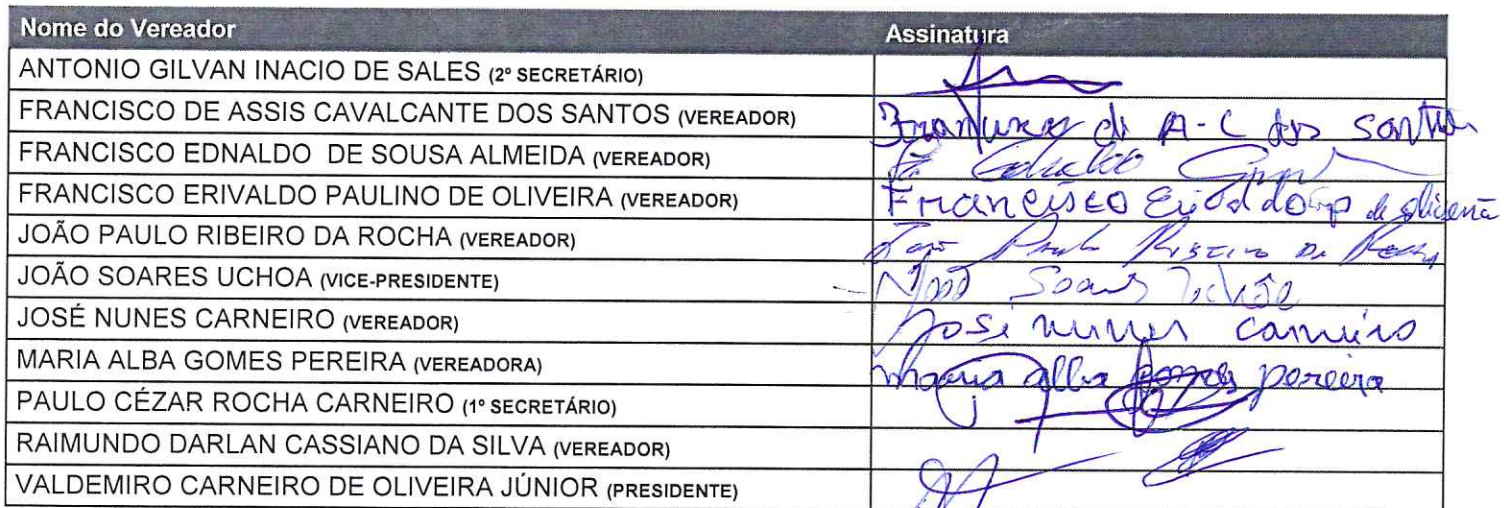 Nome do Vereador Assinatura
ANTONIO GILVAN INACIO DE SALES (2º SECRETÁRIO)
FRANCISCO DE ASSIS CAVALCANTE DOS SANTOS (VEREADOR) A-C dos Santos
FRANCISCO EDNALDO DE SOUSA ALMEIDA (VEREADOR)
FRANCISCO ERIVALDO PAULINO DE OLIVEIRA (VEREADOR) Francisco
JOÃO PAULO RIBEIRO DA ROCHA (VEREADOR) Paulo Ribeiro Da Rocha
JOÃO SOARES UCHOA (VICE-PRESIDENTE)
JOSÉ NUNES CARNEIRO (VEREADOR) José nunes Carneiro
MARIA ALBA GOMES PEREIRA (VEREADORA) maria alba gomes pereira
PAULO CÉZAR ROCHA CARNEIRO (1º SECRETÁRIO)
RAIMUNDO DARLAN CASSIANO DA SILVA (VEREADOR)
VALDEMIRO CARNEIRO DE OLIVEIRA JÚNIOR (PRESIDENTE)